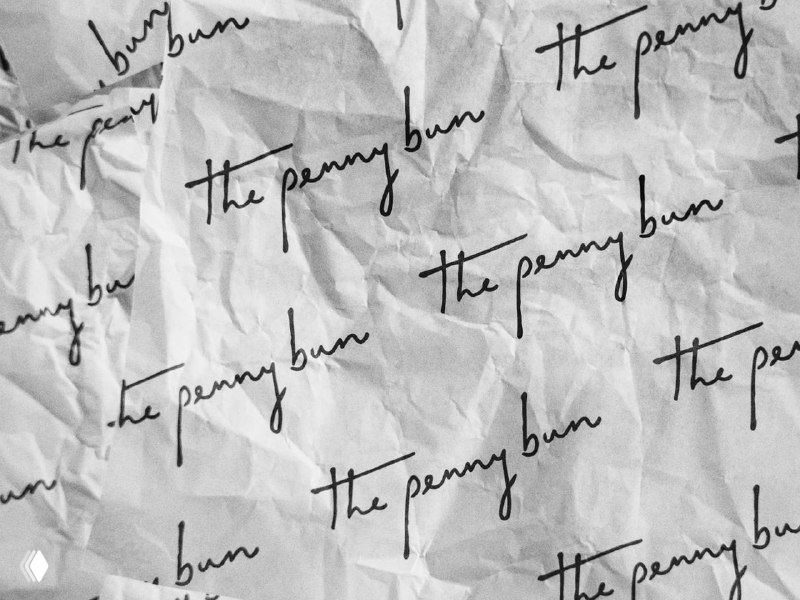 bun
bun
the penny b
the penny
the penny bun
the penny bun
enny bu
the penny bun
the pen
the penny bun
un
bun
the penny bu